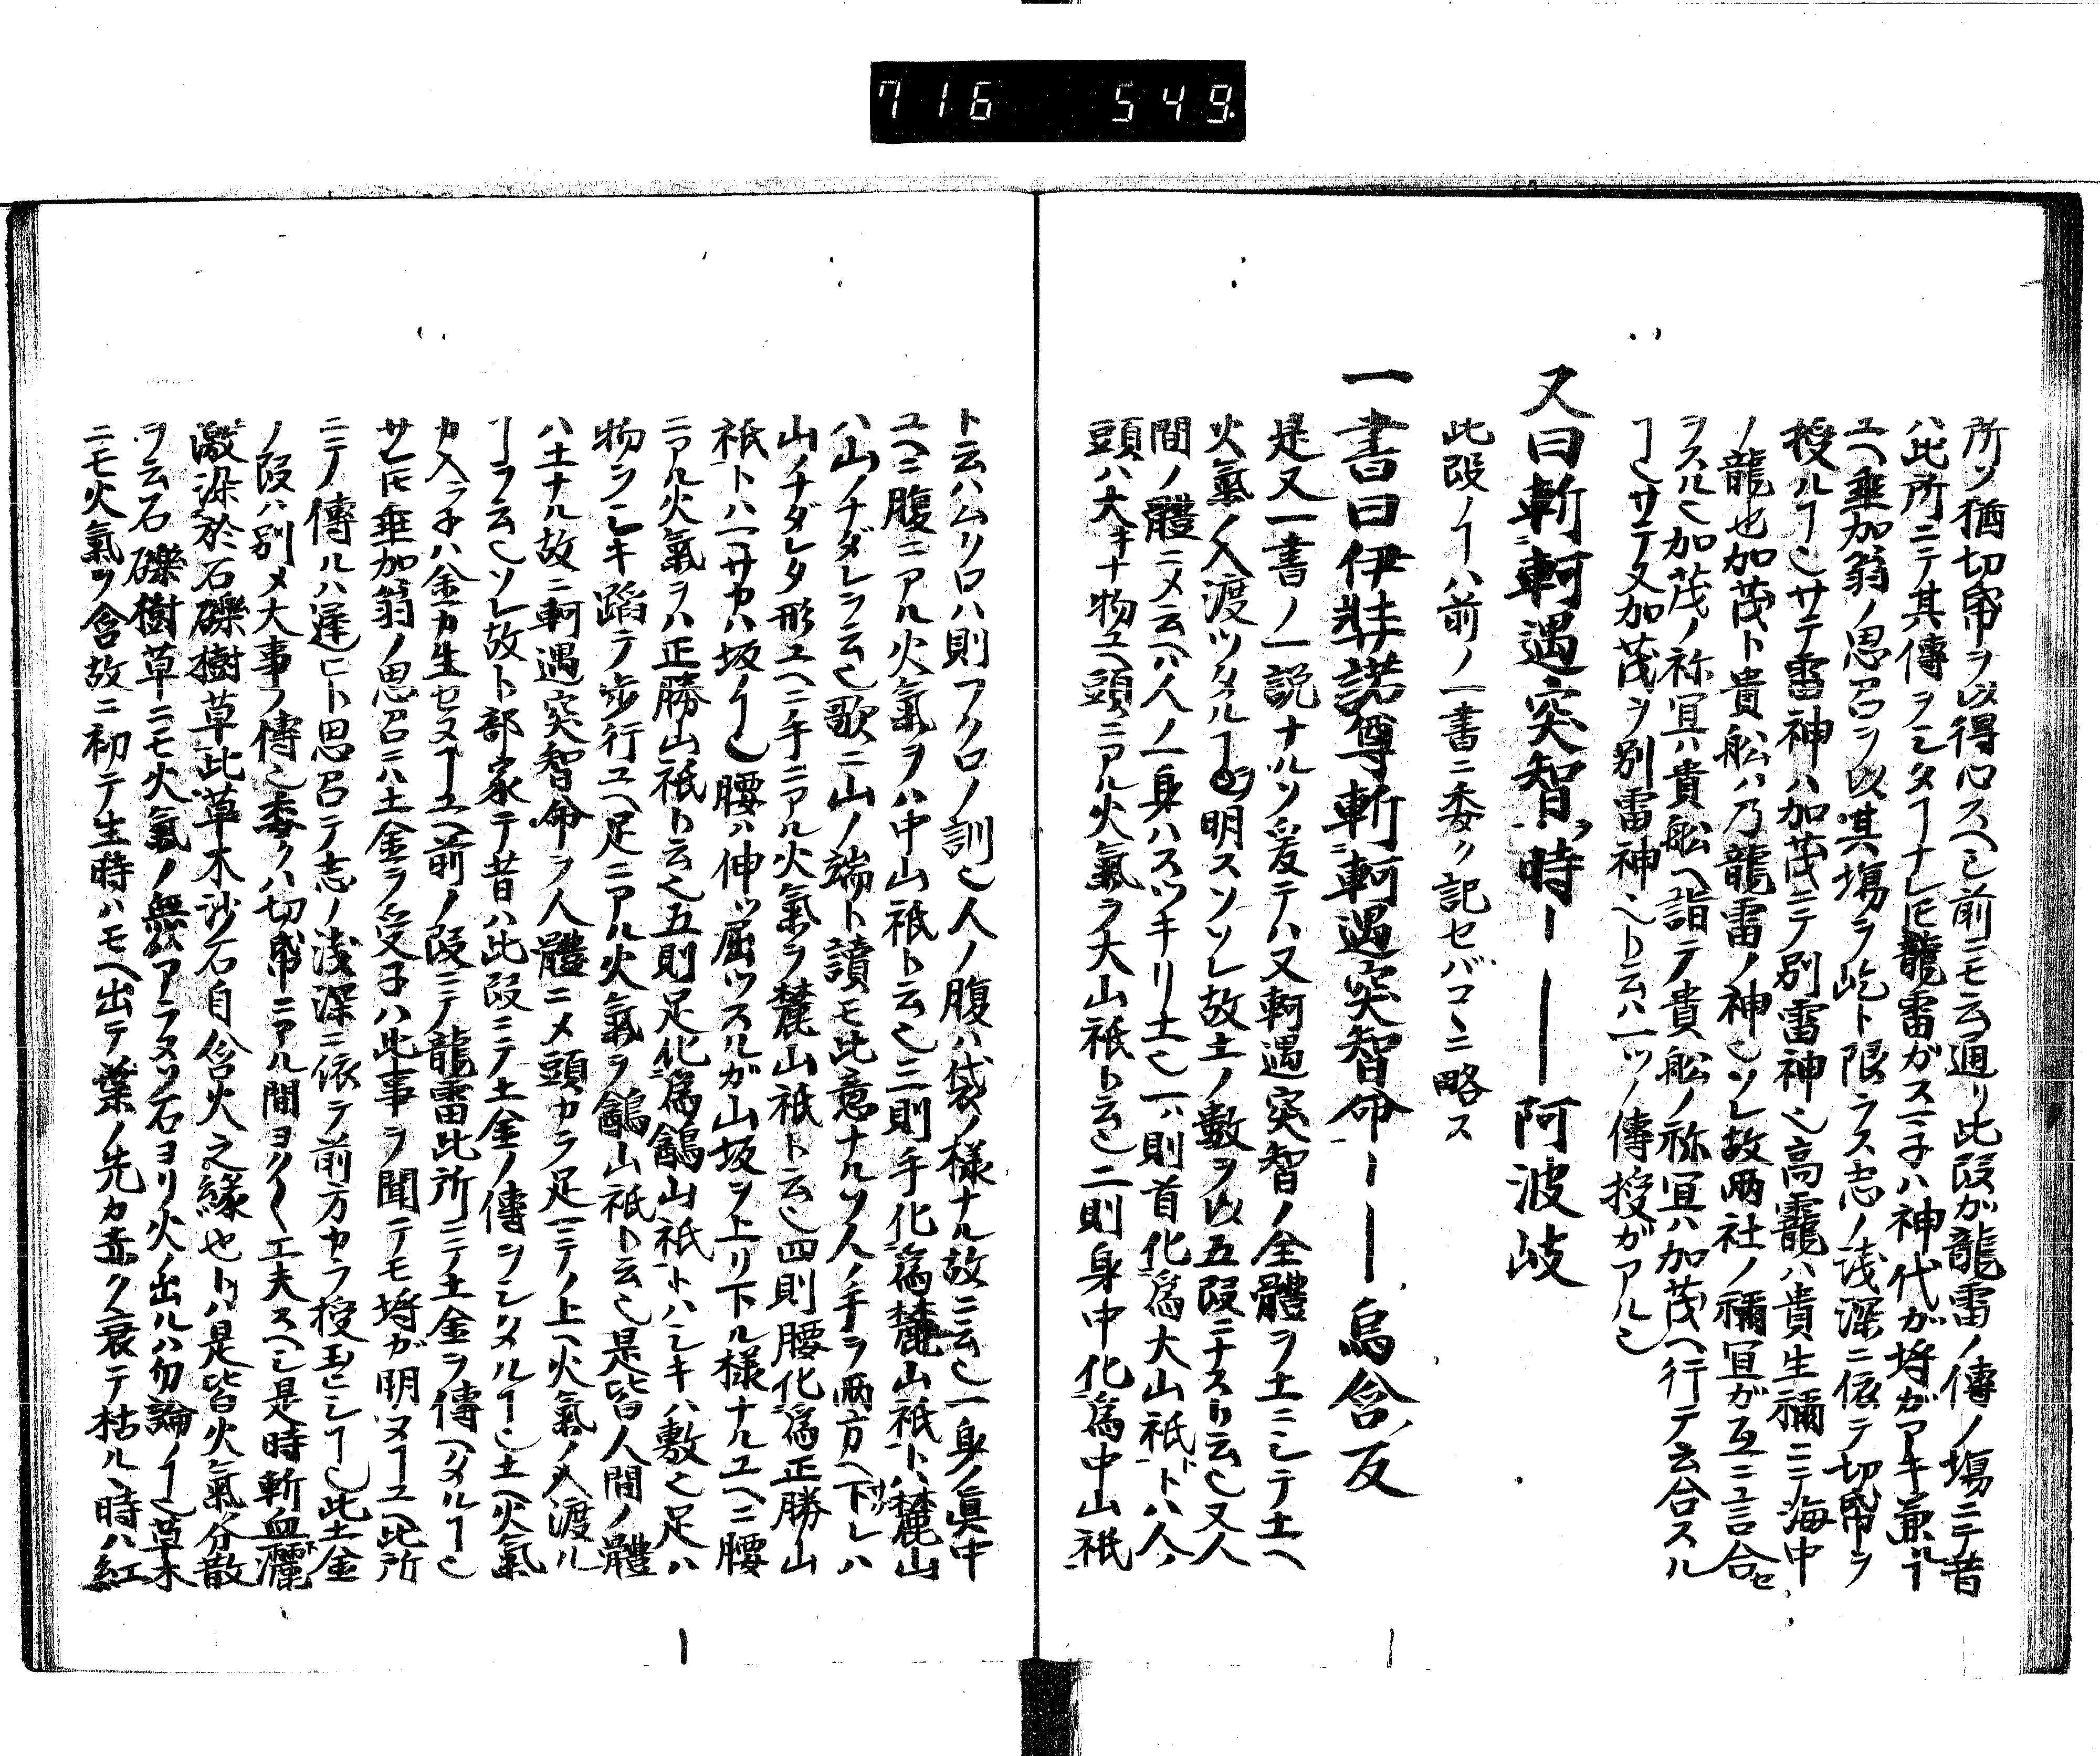 716 549.
所ソ猶切帋ヲ以得心スヘシ前ニモ云通リ此段ガ龍雷ノ傳ノ塲ニテ昔
ハ此所ニテ其傳ヲシタヿナレ𪜈龍雷ガスミ子ハ神代ガ埒ガアキ兼ルヿ
ユヘ垂加翁ノ思召ヲ以其塲ヲ屹ト限ラス志ノ浅深ニ依テ切帋ヲ
授ルヿ也サテ雷神ハ加茂ニテ別雷神也高龗ハ貴生禰ニテ海中
ノ龍也加茂ト貴舩ハ乃龍雷ノ神也ソレ故両社ノ禰冝ガ互ニ言合セ
ヲスル也加茂ノ祢冝ハ貴舩ヘ詣テ貴舩ノ祢冝ハ加茂ヘ行テ云合スル
ヿ也サテ又加茂ヲ別雷神也ト云ハ一ツノ傳授ガアル也
又曰斬軻遇突智時ーーー阿波岐
此段ノヿハ前ノ一書ニ委ク記セバコヽニ略ス
一書曰伊弉諾尊斬軻遇突智命ーーー烏含反
是又一書ノ一説ナルソ爰テハ又軻遇突智ノ全體ヲ土ニシテ土ヘ
火氣ノ入渡ツタルヿヲ明スソソレ故土ノ數ヲ以五段ニナスト云也又人
間ノ體ニメ云ヘハ人ノ一身ハスツキリ土也一ハ則首化爲大山祇トハ人ノ
頭ハ大キナ物ユヘ頭ニアル火氣ヲ大山祇ト云也二則身中化爲中山祇
ト云ハムクロハ則フクロノ訓也人ノ腹ハ袋ノ様ナル故ニ云也一身ノ眞中
ユヘニ腹ニアル火氣ヲハ中山祇ト云也三則手化爲麓山祇トハ麓山
ハ山ノナダレヲ云也歌ニ山ノ端ト讀モ此意ナルソ人ノ手ヲ両方ヘ下レハ
山ノナダレタ形ユヘニ手ニアル火氣ヲ麓山祇ト云也四則腰化爲正勝山
祇トハ一サカハ坂ノヿ也腰ハ伸ツ屈ツスルガ山坂ヲ上リ下ル様ナルユヘニ腰
ニアル火氣ヲハ正勝山祇ト云也五則足化爲䨄山祇トハシキハ敷也足ハ
物ヲシキ蹈テ歩行ユヘ足ニアル火氣ヲ䨄山祇ト云也是皆人間ノ體
ハ土ナル故ニ軻遇突智命ヲ人體ニメ頭カラ足ニテノ上ヘ火氣ノ入渡ル
ヿヲ云也ソレ故ト部家テ昔ハ此段ニテ土金ノ傳ヲシタルヿ也土ヘ火氣
カ入ラ子ハ金カ生セヌヿユヘ前ノ段ニテ龍雷此所ニテ土金ヲ傳ヘタルヿ也
サレ𪜈垂加翁ノ思召ニハ土金ヲ受子ハ此事ヲ聞テモ埒ガ明ヌヿユヘ此所
ニテノ傳ルハ遅ヒト思召テ志ノ浅深ニ依テ前方カラ授玉ヒシヿ也此土金
ノ段ハ別メ大事ヲ傳也委クハ切帋ニアル間ヨク〱工夫スヘシ是時斬血灑
激染於石礫樹草此草木沙石自含火之縁也トハ是皆火氣分散
ヲ云石礫樹草ニモ火氣ノ無ハアラヌソ石ヨリ火ノ出ルハ勿論ノヿ也草木
ニモ火氣ヲ含故ニ初テ生時ハモヘ出テ葉ノ先カ赤ク衰テ枯ルヽ時ハ紅